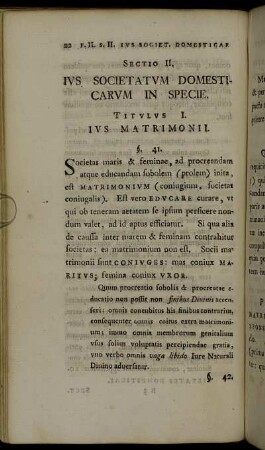 20 P. II. S. II. IVS SOCIET. DOMESTICAE
SECTIO II.
IVS SOCIETATVM DOMESTI-
CARVM IN SPECIE.
TITVLVS I.
IVS MATRIMONII.
§. 41.
Societas maris & feminae, ad procreandam
atque educandam sobolem (prolem) inita,
est MATRIMONIVM (coniugium, societas
coniugalis). Est vero EDVCARE curare, vt
qui ob teneram aetatem se ipsum perficere non-
dum valet, ad id aptus efficiatur. Si qua alia
de caussa inter marem & feminam contrahitur
societas: ea matrimonium non est. Socii ma-
trimonii sunt CONIVGES: mas coniux MA-
RITVS; femina coniux VXOR.
Quum procreatio sobolis & procreatae e-
ducatio non posse non finibus Diuinis accen-
seri: omnis concubitus his finibus contrarius,
consequenter omnis coitus extra matrimoni-
um; immo omnis membrorum genitalium
vsus solius voluptatis percipiendae gratia,
vno verbo omnis vaga libido, Iure Naturali
Diuino aduersetur.
§. 42.